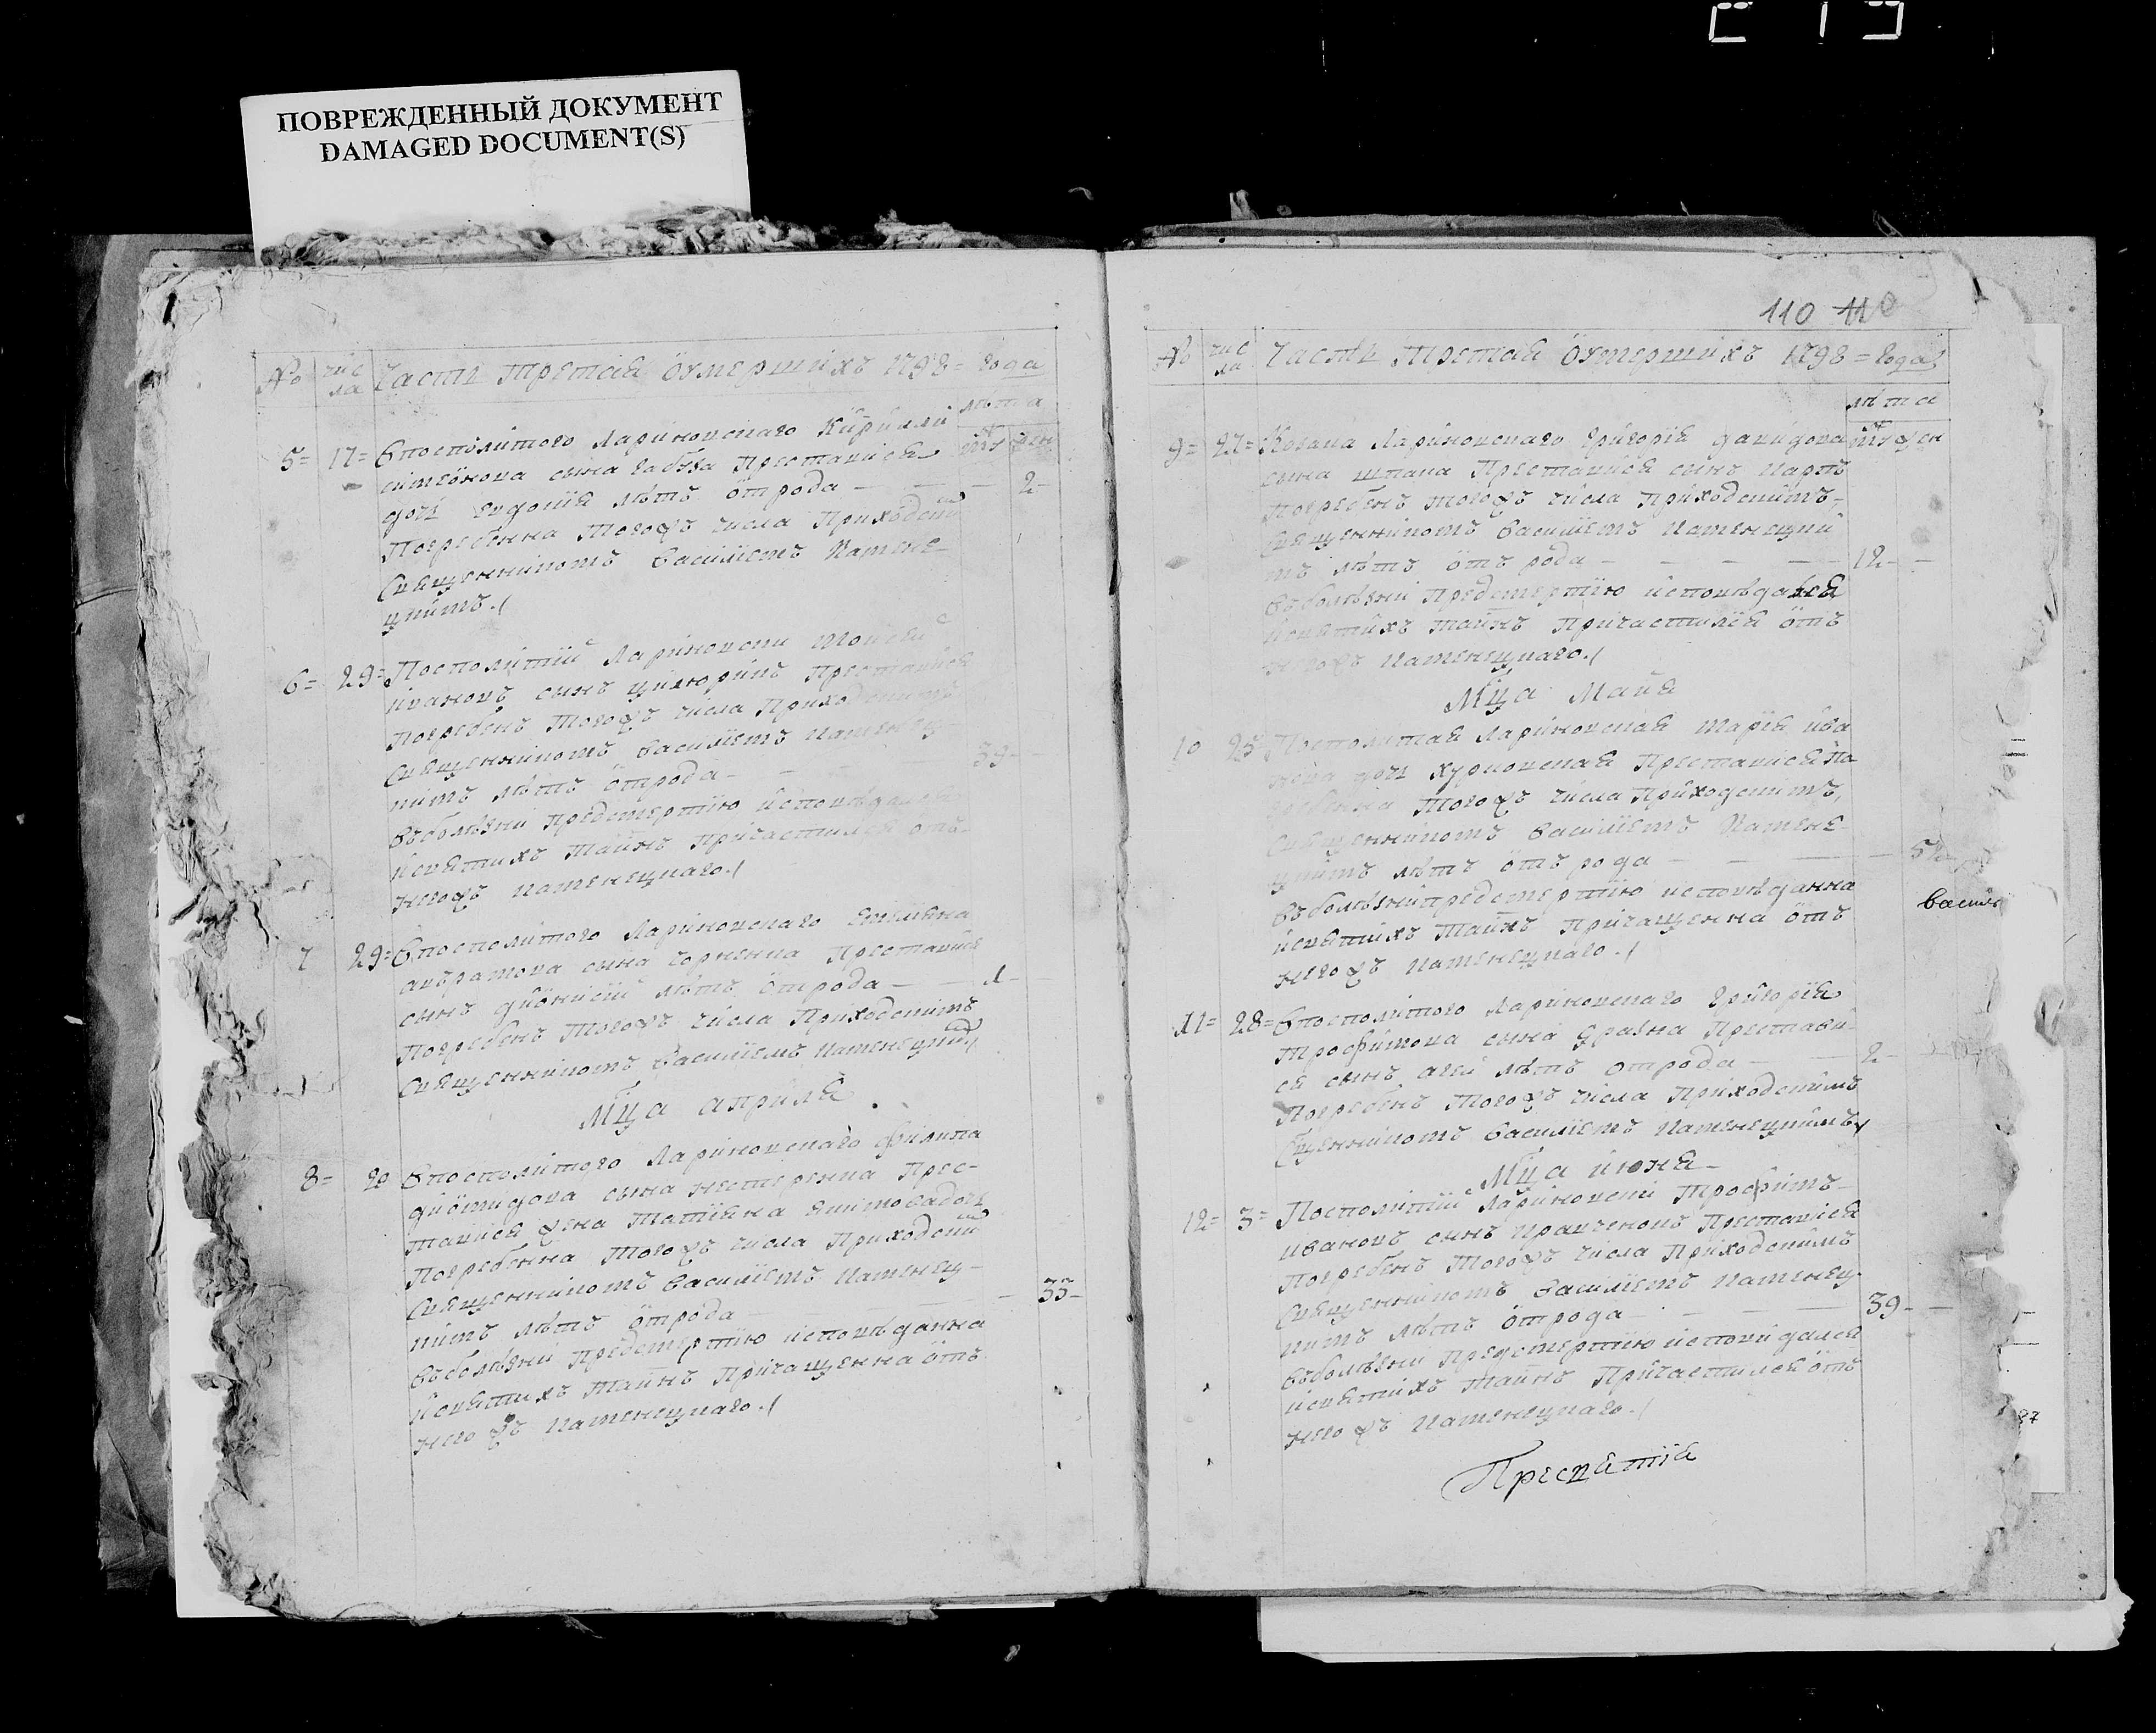 ПОВРЕЖДЕННЫЙ ДОКУМЕНТ
DAMAGED DOCUMENT(S)
№ чис ла Часть третая о умершихъ 1798 = года
лѣта
муж жен
5= 17= Упосполитого Лариновского Кирилли
симеонова сына Преставися
дочь евдокия лѣтъ отрода — 2-
Погребенна тогожъ числа Приходски
Священникомъ Василиемъ Камене-
цкимъ./
6= 29= Посполитий Лариновски Мойсей
ивановъ сынъ цилюрикъ Преставися
погребенъ тогожъ числа Приходскимъ
Священникомъ Василиемъ Каменец-
кимъ лѣтъ отрода — 39-
Въболѣзни предсмертию исповѣдался
исвятихъ таинъ причастился отъ-
негожъ Каменецкаго./
7 29= Упосполитого Лариновского
авърамова сына Преставися
сынъ дионисий лѣтъ отрода — 1-
Погребенъ тогожъ числа Приходскимъ
Священникомъ Василиемъ Каменецким/
Мца априля
8= 20 Упосполитого Лариновского филипа
диомидова сына нестеренка Прес-
тавися жена татияна
Погребенна тогожъ числа Приходски
Священникомъ Василиемъ Каменец-
кимъ лѣтъ отрода — 33-
Въболѣзни предсмертию исповѣданна
исвятихъ таинъ Причащенна отъ
негожъ Каменецкаго./
110 110
№ чис ла Часть третая о умершихъ 1798 = года
лѣта
муж жен
9= 27= Козака Лариновского Григория давидова
сына шпака Преставися сынъ карпъ
погребенъ тогожъ числа Приходскимъ-
Священникомъ Василиемъ Каменецки
мъ лѣтъ отъ рода — 12-
Въболѣзни Предсмертию исповѣдался
исвятихъ таинъ Причастился отъ
негожъ Каменецкаго./
Мца Майя
10 25 Посполитая Лариновская Мария ива
нова дочь Преставися По
гребенна тогожъ числа Приходскимъ,
Священникомъ Василиемъ Камене-
цкимъ лѣтъ отъ рода —
Въболѣзни предсмертию исповѣданна
исвятихъ таинъ Причащенна отъ
негожъ Каменецкаго./
11= 28= Упосполитого Лариновского Григория
трофимова сына Престави-
ся сынъ лѣтъ отрода — 2-
Погребенъ тогожъ числа Приходскимъ
Сщенникомъ Василиемъ Каменецкимъ/
Мца июня-
12= 3= Посполитий Лариновски Трофимъ-
ивановъ сынъ кравченокъ Преставися
погребенъ тогожъ числа Приходскимъ
Священникомъ Василиемъ Каменец-
кимъ лѣтъ отрода — 39-
Въболѣзни Предсмертию исповидался
исвятихъ таинъ Причастился отъ
негожъ Каменецкаго./
87